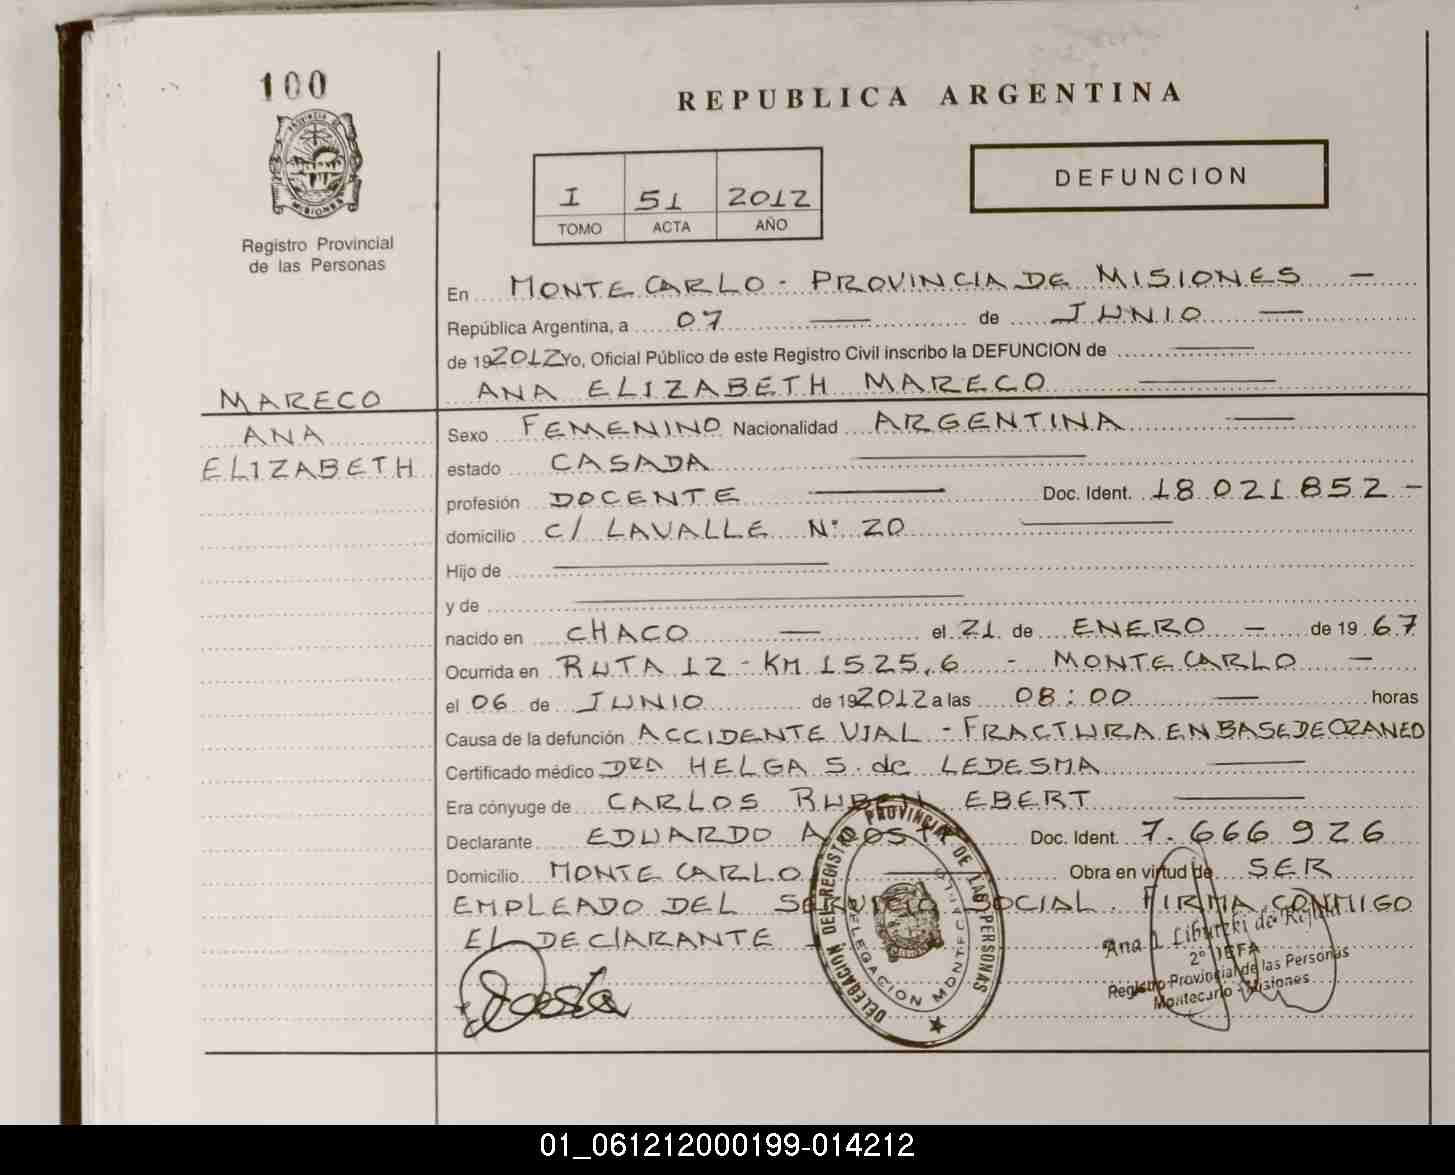 100
PROVINCIA DE
MISIONES
Registro Provincial
de las Personas
MARECO
ANA
ELIZABETH
REPUBLICA ARGENTINA
I 51 2012
TOMO ACTA AÑO
DEFUNCION
En MONTECARLO - PROVINCIA DE MISIONES —
República Argentina, a 07 — de JUNIO —
de 192012 Yo, Oficial Público de este Registro Civil inscribo la DEFUNCION de —
ANA ELIZABETH MARECO —
Sexo FEMENINO Nacionalidad ARGENTINA —
estado CASADA —
profesión DOCENTE — Doc. Ident. 18.021.852 -
domicilio C/ LAVALLE Nº 20 —
Hijo de —
y de —
nacido en CHACO — el 21 de ENERO — de 19 67
Ocurrida en RUTA 12 - KM 1525,6 - MONTECARLO —
el 06 de JUNIO de 192012 a las 08:00 — horas
Causa de la defunción ACCIDENTE VIAL - FRACTURA EN BASE DE CRANEO
Certificado médico DRA HELGA S. de LEDESMA —
Era cónyuge de CARLOS RUBEN EBERT —
Declarante EDUARDO ACOSTA Doc. Ident. 7.666.926
Domicilio MONTECARLO — Obra en virtud de SER
EMPLEADO DEL SERVICIO SOCIAL. FIRMA CONMIGO
EL DEClARANTE -
Acosta
DELEGACION DEL REGISTRO PROVINCIAL DE LAS PERSONAS
DELEGACION MONTECARLO
Ana
2º JEFA
Registro Provincial de las Personas
Montecarlo - Misiones
01_061212000199-014212